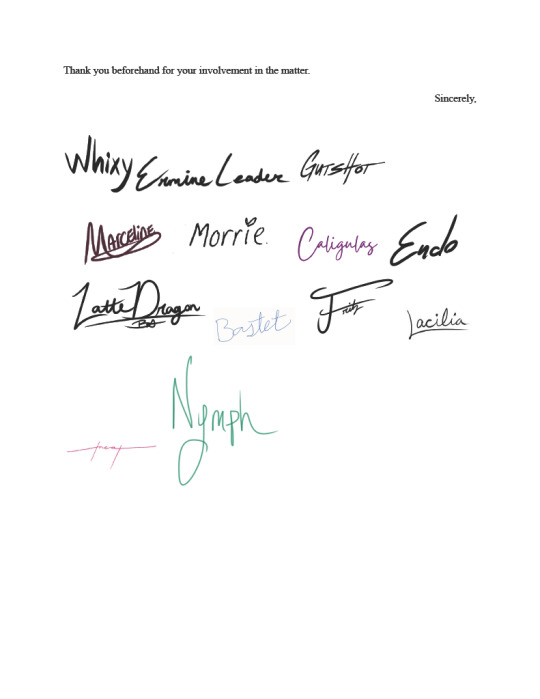 Thank you beforehand for your involvement in the matter.
Sincerely,
Whixy Ermine Leader GutsHot
Marceline Morrie. Caligulas Endo
Latte Dragon Bastet Fritz Lacilia
Nymph